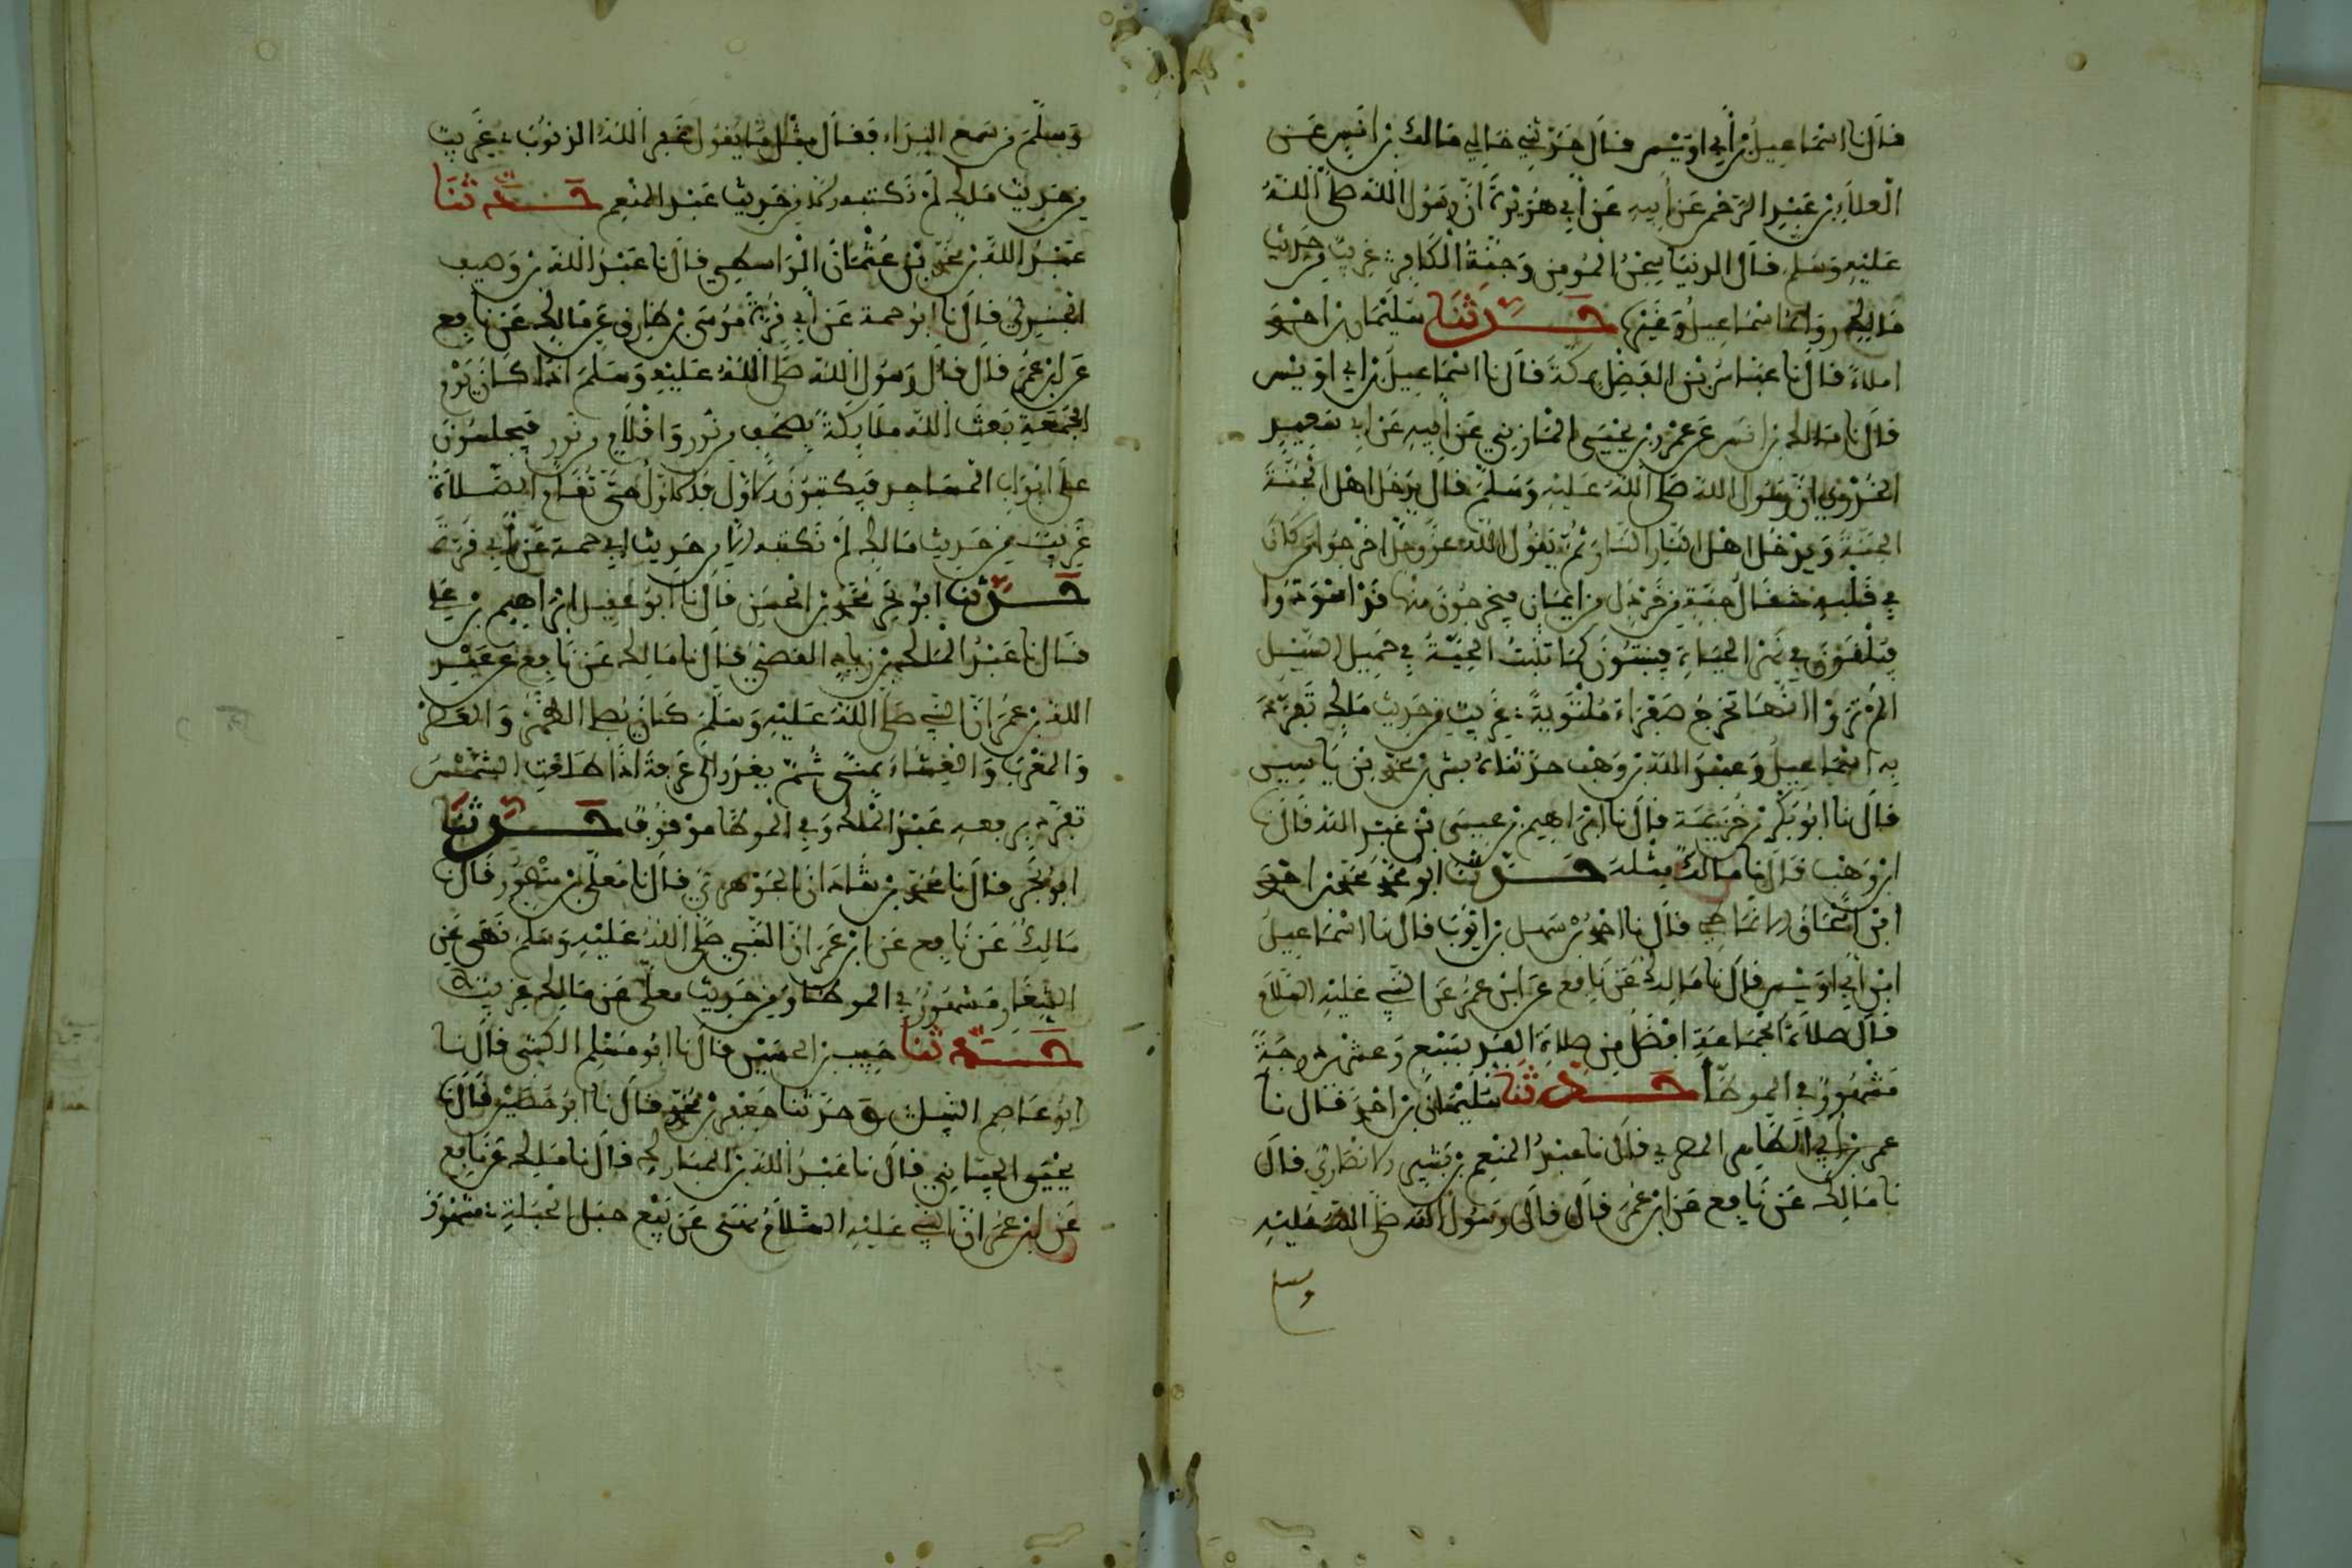 قال نا اسماعيل بن أبي اويس قال حدثني خالي مالك بن انس عن
العلاء بن عبد الرحمن عن أبيه عن أبي هريرة ان رسول الله صلى الله
عليه وسلم قال الدنيا سجن المومن وجنة الكافر غريب من حديث
مالك رواه اسماعيل وغيره حدثنا سليمان بن احمد
املاء قال نا عباس بن الفضل قال نا اسماعيل بن أبي اويس
قال نا مالك بن انس عن عمرو بن يحيى المازني عن ابيه عن ابي سعيد
الخدري ان رسول الله صلى الله عليه وسلم قال يدخل اهل الجنة
الجنة ويدخل اهل النار النار ثم يقول الله عز وجل اخرجوا من كان
في قلبه مثقال حبة من خردل من ايمان فيخرجون منها قد اسودوا
فيلقون في نهر الحياة فينبتون كما تنبت الحبة في حميل السيل
الم تروا انها تخرج صفراء ملتوية غريب من حديث مالك تفرد
به اسماعيل وعبد الله بن وهب حدثناه بشر بن محمد بن ياسين
قال نا ابو بكر بن خزيمة قال نا ابراهيم بن عيسى بن عبد الله قال نا
ابن وهب قال نا مالك مثله حدثنا ابو محمد محمد بن احمد
ابن اسحاق الانماطي قال نا احمد بن سهل بن ايوب قال نا اسماعيل
ابن أبي اويس قال نا مالك عن نافع عن ابن عمر عن النبي عليه السلام
قال صلاة الجماعة افضل من صلاة الفذ بسبع وعشرين درجة
مشهور في الموطأ حدثنا سليمان بن احمد قال نا
عمر بن أبي الطاهر المصري قال نا عبد المنعم بن بشير الانصاري قال
نا مالك عن نافع عن ابن عمر قال قال رسول الله صلى الله عليه
وسلم
وسلم من سمع النداء فقال مثل ما يقول غفر الله الذنوب غريب
من حديث مالك لم نكتبه الا من حديث عبد المنعم حدثنا
عبد الله بن محمد بن عثمان الواسطي قال نا عبد الله بن وهيب
قال نا ابو حمة عن أبي قرة موسى بن طارق عن مالك عن نافع
عن ابن عمر قال قال رسول الله صلى الله عليه وسلم اذا كان يوم
الجمعة بعث الله ملايكة بصحف من نور واقلام من نور فيجلسون
على ابواب المساجد فيكتبون الاول فالاول حتى تقام الصلاة
غريب من حديث مالك لم نكتبه الا من حديث ابي حمة عن أبي قرة
حدثنا ابو بحر محمد بن الحسن قال نا ابو عقيل ابراهيم بن علي
قال نا عبد الملك بن زياد قال نا مالك عن نافع عن عبد
الله بن عمر ان النبي صلى الله عليه وسلم كان يصلي الظهر والعصر
والمغرب والعشاء بمنى ثم يغدو الى عرفة اذا طلعت الشمس
تفرد برفعه عبد الملك وفي الموطأ موقوف حدثنا
ابو بحر قال نا محمد بن شاذان الجوهري قال نا معلى بن منصور قال نا
مالك عن نافع عن ابن عمر ان النبي صلى الله عليه وسلم نهى عن
الشغار مشهور في الموطأ ومن حديث معلى عن مالك غريب
حدثنا حبيب بن الحسن قال نا ابو مسلم الكشي قال نا
ابو عاصم النبيل وحدثنا جعفر بن محمد قال نا ابو حصين قال نا
يحيى الحماني قال نا عبد الله بن المبارك قال نا مالك عن نافع
عن ابن عمر ان النبي عليه السلام نهى عن بيع حبل الحبلة مشهور